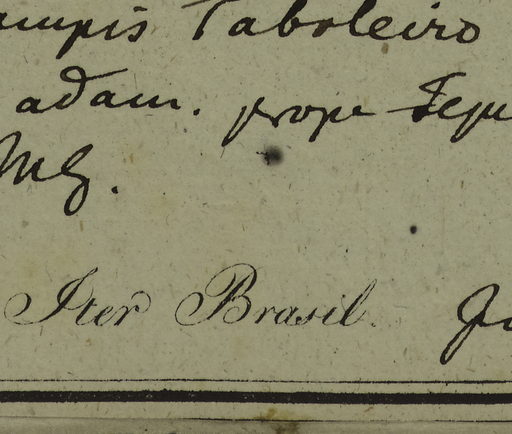 ampis Taboleiro
adam. prope Teju
Iter Brasil.